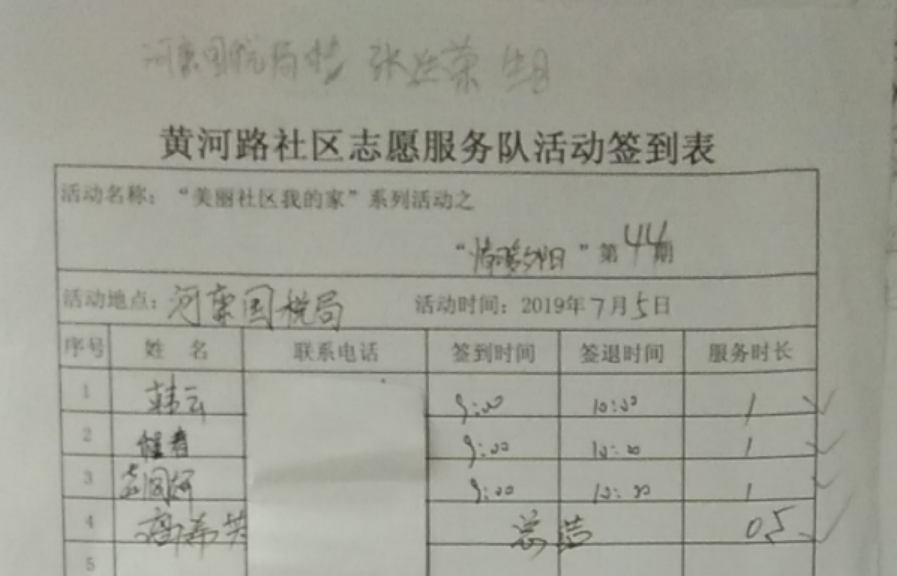 河东国税局 张 荣 生日
黄河路社区志愿服务队活动签到表
活动名称：“美丽社区我的家”系列活动之
“情暖夕阳”第44期
活动地点：河东国税局 活动时间：2019年7月5日
序号 姓 名 联系电话 签到时间 签退时间 服务时长
1 韩云 9:00 10:00 1
2 9:00 10:00 1
3 9:00 10:00 1
4 高希芳 总结 0.5
5